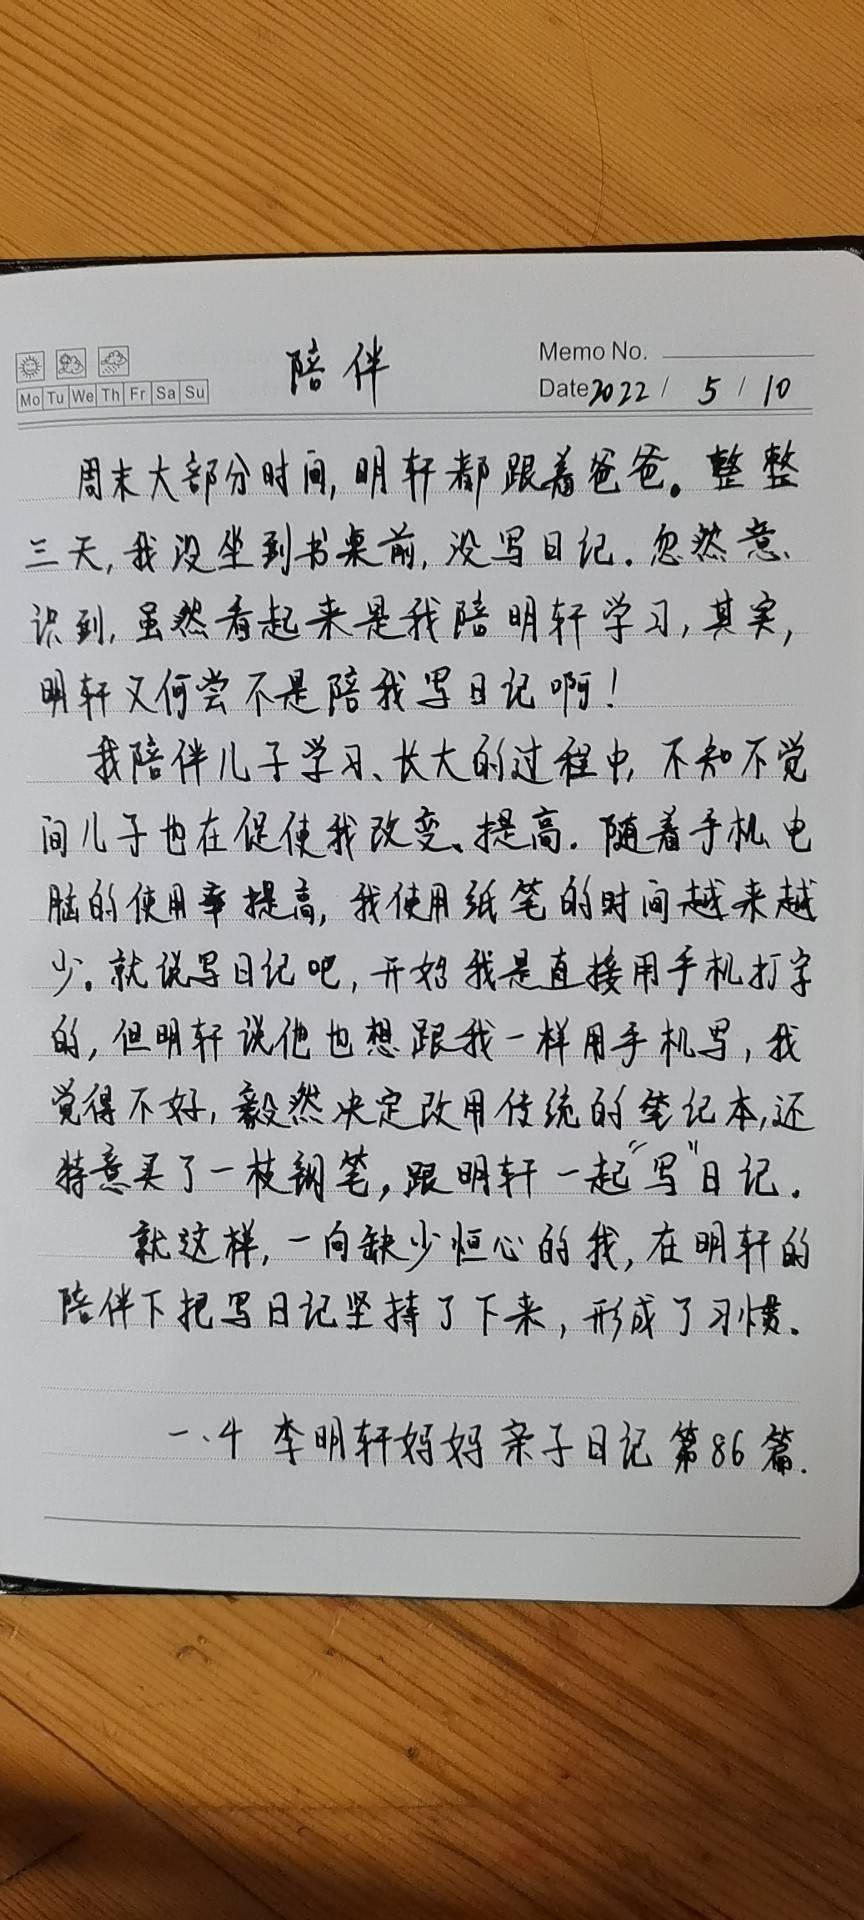 陪伴
Memo No.
Mo Tu We Th Fr Sa Su
Date 2022 / 5 / 10
周末大部分时间,明轩都跟着爸爸。整整
三天,我没坐到书桌前,没写日记.忽然意
识到,虽然看起来是我陪明轩学习,其实,
明轩又何尝不是陪我写日记啊!
我陪伴儿子学习、长大的过程中,不知不觉
间儿子也在促使我改变、提高.随着手机电
脑的使用率提高,我使用纸笔的时间越来越
少。就说写日记吧,开始我是直接用手机打字
的,但明轩说他也想跟我一样用手机写,我
觉得不好,毅然决定改用传统的笔记本,还
特意买了一枝钢笔,跟明轩一起“写”日记.
就这样,一向缺少恒心的我,在明轩的
陪伴下把写日记坚持了下来,形成了习惯.
一.4 李明轩妈妈亲子日记第86篇.